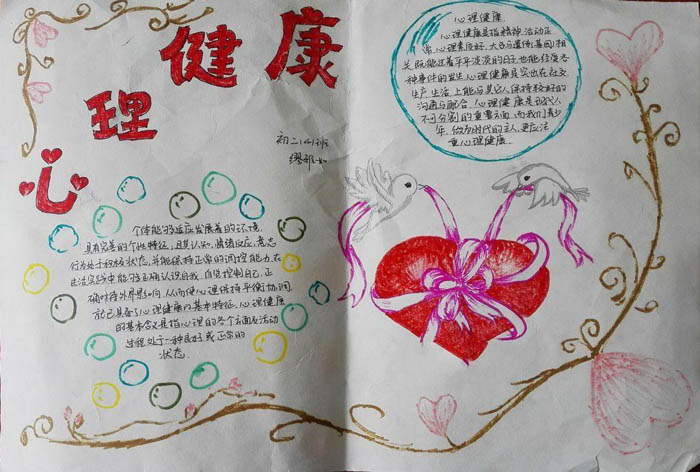 心理健康
初二(4)班
缪雅如
个体能够适应发展着的环境,
具有完善的个性特征,且其认知,情绪反应,意志
行为处于积极状态,并能保持正常的调控能力,在
生活实践中能够正确认识自我,自觉控制自己,正
确对待外界影响,从而使心理保持平衡协调,
就已具备了心理健康的基本特征,心理健康
的基本含义是指心理的各个方面及活动
过程处于一种良好或正常的
状态.
心理健康
心理健康是指精神活动正
常,心理素质好.大多与遗传(基因)相
关,既能过着平平淡淡的日子,也能经受各
种事件的发生,心理健康突出在社交
生产生活上能与其它人保持较好的
沟通与配合,心理健康是现代人
不可分割的重要方面,而我们青少
年,做为时代的主人,更应注
重心理健康.